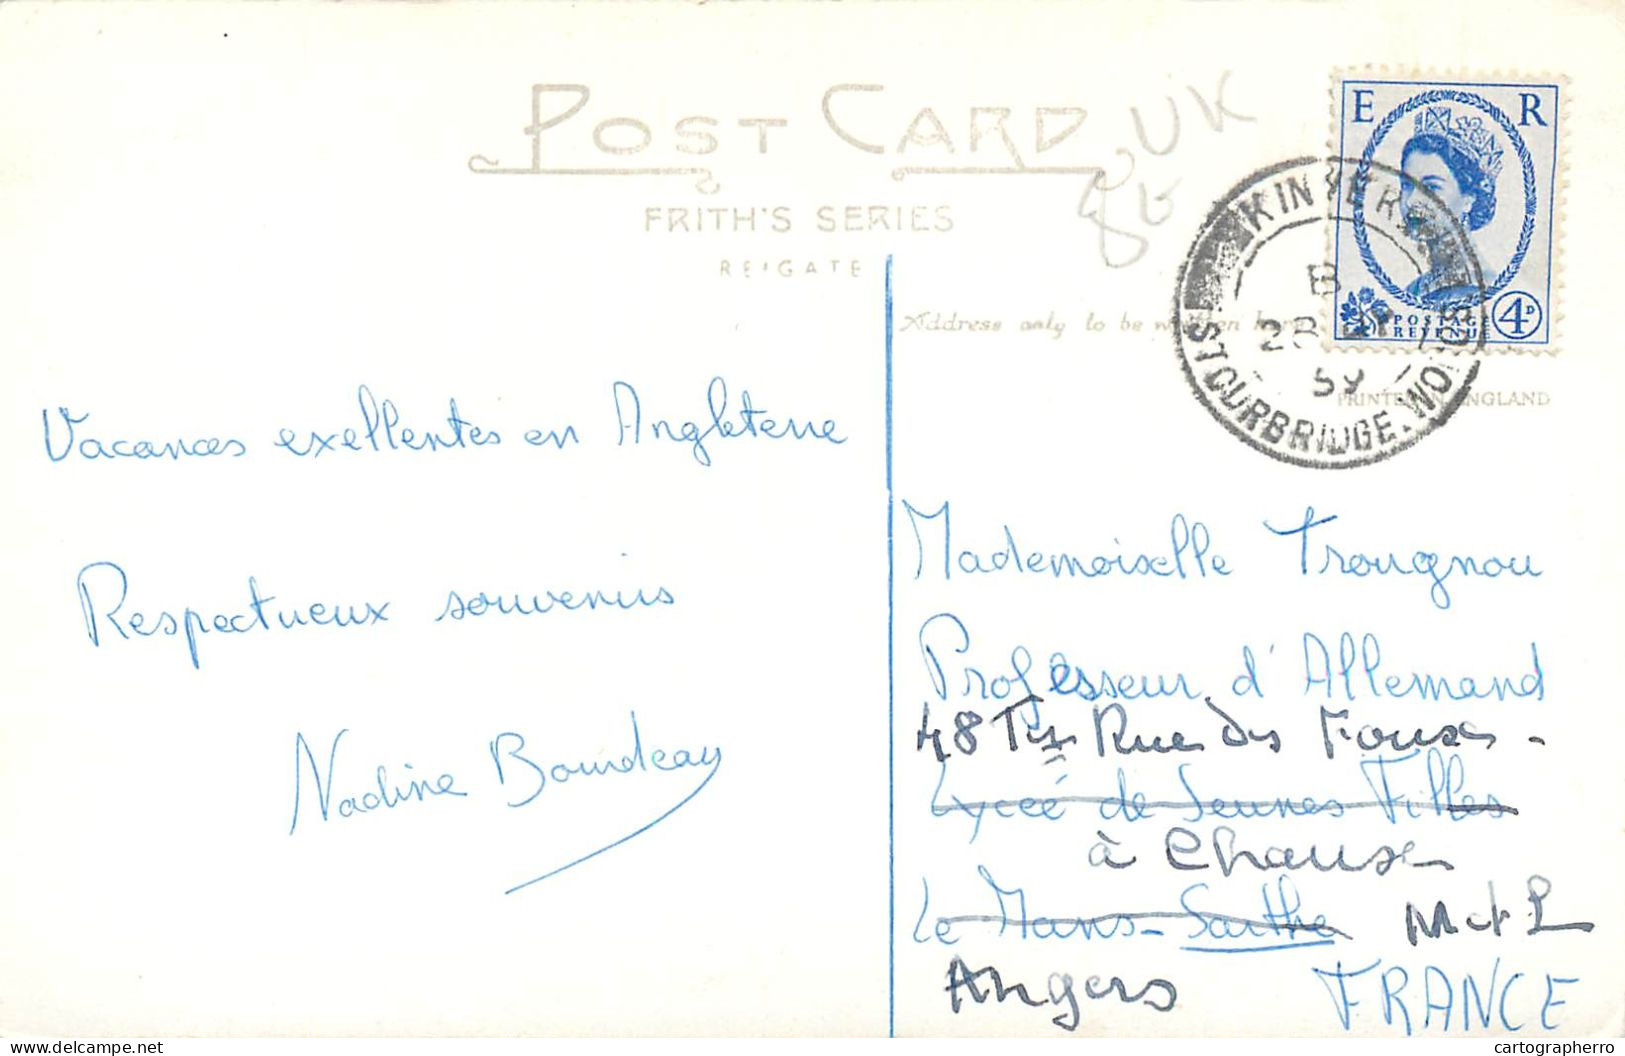 POST CARD
UK
FRITH'S SERIES
REIGATE
E R
POSTAGE
REVENUE
4D
KINVER
B
59
STOURBRIDGE. WORCS
Address only to be written here
PRINTED IN ENGLAND
Vacances exellentes en Angleterre
Respectueux souvenirs
Nadine Bourdeau
Mademoiselle Trougnou
Professeur d'Allemand
48 Ter Rue des
Lycée de Jeunes Filles
à
Le Mans - Sarthe M et L
Angers
FRANCE
cartographerro